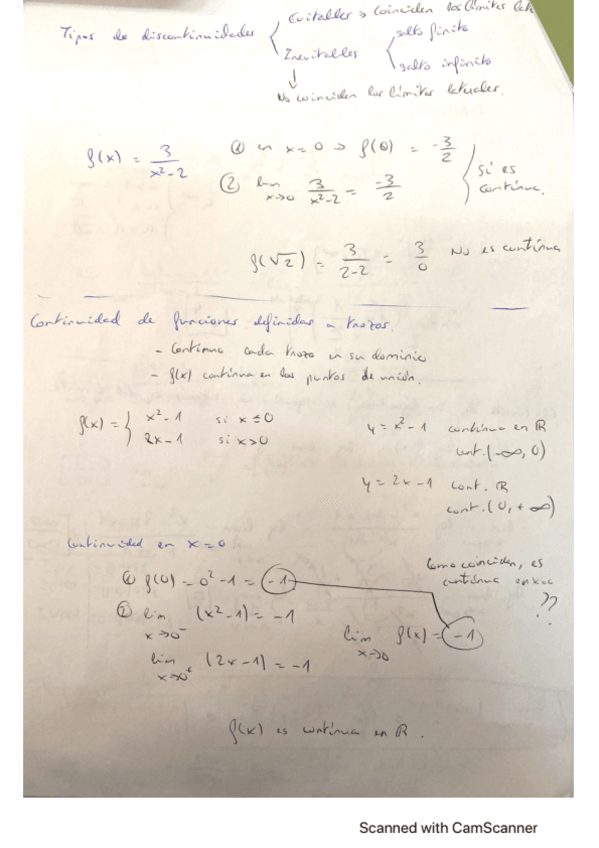 Evitables → Coinciden los límites late
Tipos de discontinuidades
salto finito
Inevitables
salto infinito
↓
No coinciden los límites laterales.
f(x) = 3/(x²-2)
① en x=0 → f(0) = -3/2
② lim x→0 3/(x²-2) = -3/2
Si es continua.
f(√2) = 3/(2-2) = 3/0 No es continua
Continuidad de funciones definidas a trozos.
- Continua cada trozo en su dominio
- f(x) continua en los puntos de unión.
f(x) = { x²-1 si x ≤ 0
2x-1 si x>0
y = x²-1 continua en ℝ
cont. (-∞, 0)
y = 2x-1 cont. ℝ
cont. (0, +∞)
Continuidad en x=0
① f(0) = 0²-1 = -1
② lim x→0⁻ (x²-1) = -1
lim x→0⁺ (2x-1) = -1
lim x→0 f(x) = -1
Como coinciden, es
continua en x=0
??
f(x) es continua en ℝ.
Scanned with CamScanner